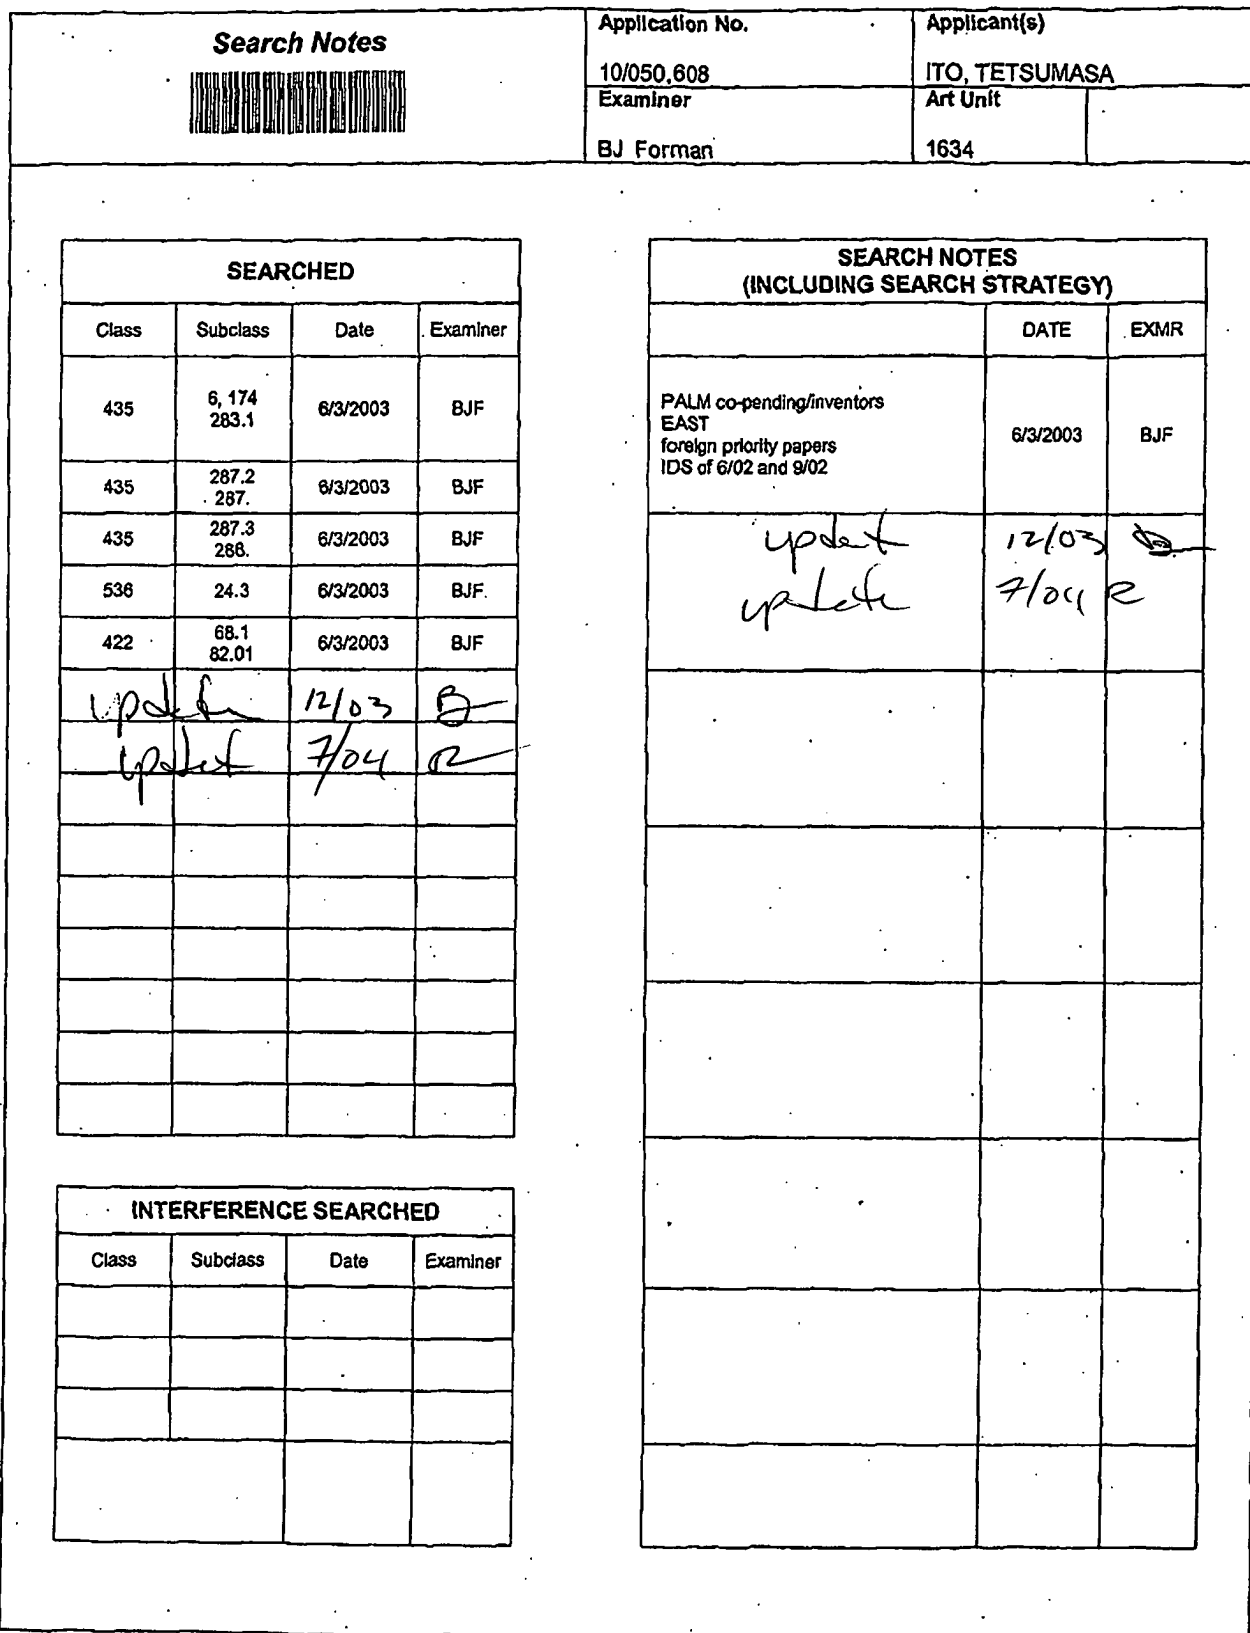 Search Notes
Application No.
10/050,608
Applicant(s)
ITO, TETSUMASA
Examiner
BJ Forman
Art Unit
1634
SEARCHED
Class Subclass Date Examiner
435 6, 174 283.1 6/3/2003 BJF
435 287.2 287. 6/3/2003 BJF
435 287.3 288. 6/3/2003 BJF
536 24.3 6/3/2003 BJF
422 68.1 82.01 6/3/2003 BJF
update 12/03
update 7/04
INTERFERENCE SEARCHED
Class Subclass Date Examiner
SEARCH NOTES
(INCLUDING SEARCH STRATEGY)
DATE EXMR
PALM co-pending/inventors
EAST
foreign priority papers
IDS of 6/02 and 9/02
6/3/2003 BJF
update 12/03
update 7/04